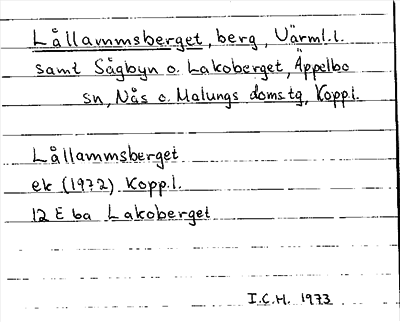 Lållammsberget, berg, Värml.l.
samt Sågbyn o. Lakoberget, Äppelbo
sn, Nås o. Malungs doms.tg, Kopp.l.
Lållammsberget
ek (1972) Kopp.l.
12 E 6a Lakoberget
I.C.H. 1973